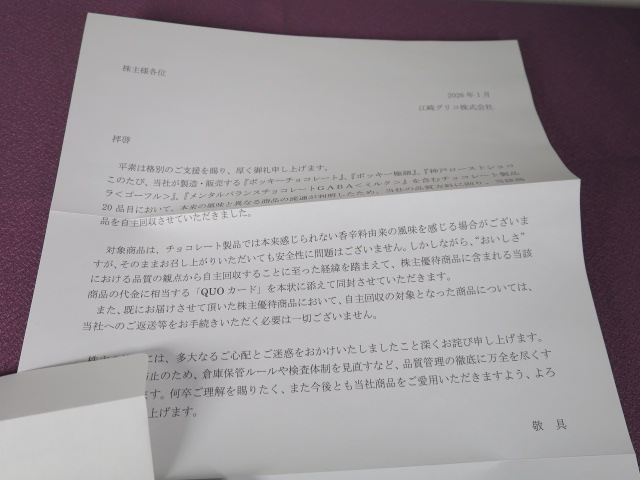 株主様各位
2026年1月
江崎グリコ株式会社
拝啓
平素は格別のご支援を賜り、厚く御礼申し上げます。
このたび、当社が製造・販売する『ポッキーチョコレート』、『ポッキー極細』、『神戸ローストショコ
ラ<ゴーフル>』、『メンタルバランスチョコレートGABA<ミルク>』を含むチョコレート製品
20品目において、本来の風味と異なる商品の流通が判明したため、当社の品質方針に則り、当該商
品を自主回収させていただきました。
対象商品は、チョコレート製品では本来感じられない香辛料由来の風味を感じる場合がございま
すが、そのままお召し上がりいただいても安全性に問題はございません。しかしながら、“おいしさ”
における品質の観点から自主回収することに至った経緯を踏まえて、株主優待商品に含まれる当該
商品の代金に相当する「QUOカード」を本状に添えて同封させていただきます。
また、既にお届けさせて頂いた株主優待商品において、自主回収の対象となった商品については、
当社へのご返送等をお手続きいただく必要は一切ございません。
には、多大なるご心配とご迷惑をおかけいたしましたこと深くお詫び申し上げます。
止のため、倉庫保管ルールや検査体制を見直すなど、品質管理の徹底に万全を尽くす
ます。何卒ご理解を賜りたく、また今後とも当社商品をご愛用いただきますよう、よろ
上げます。
敬具